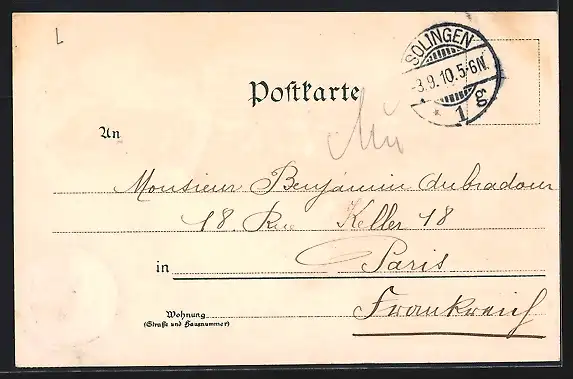 L
SOLINGEN
-3.9.10.5-6N.
* * 1 g
Postkarte
An
Monsieur Benjamin Aubradour
18. Rue Keller 18
in Paris
Wohnung Frankreich
(Straße und Hausnummer)